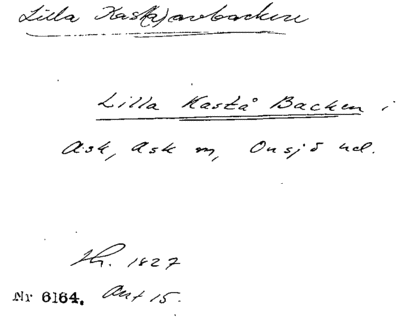 Lilla
Lilla Kastå Backen i
Ask, Ask m, Onsjö hd.
1827
Nr 6164. Akt 15.